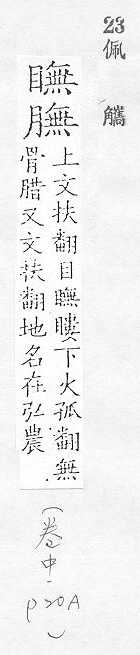 23
佩觿
瞴膴
上文扶翻目瞴瞜下火孤翻無
骨腊又文扶翻地名在弘農
(卷中 p20A)